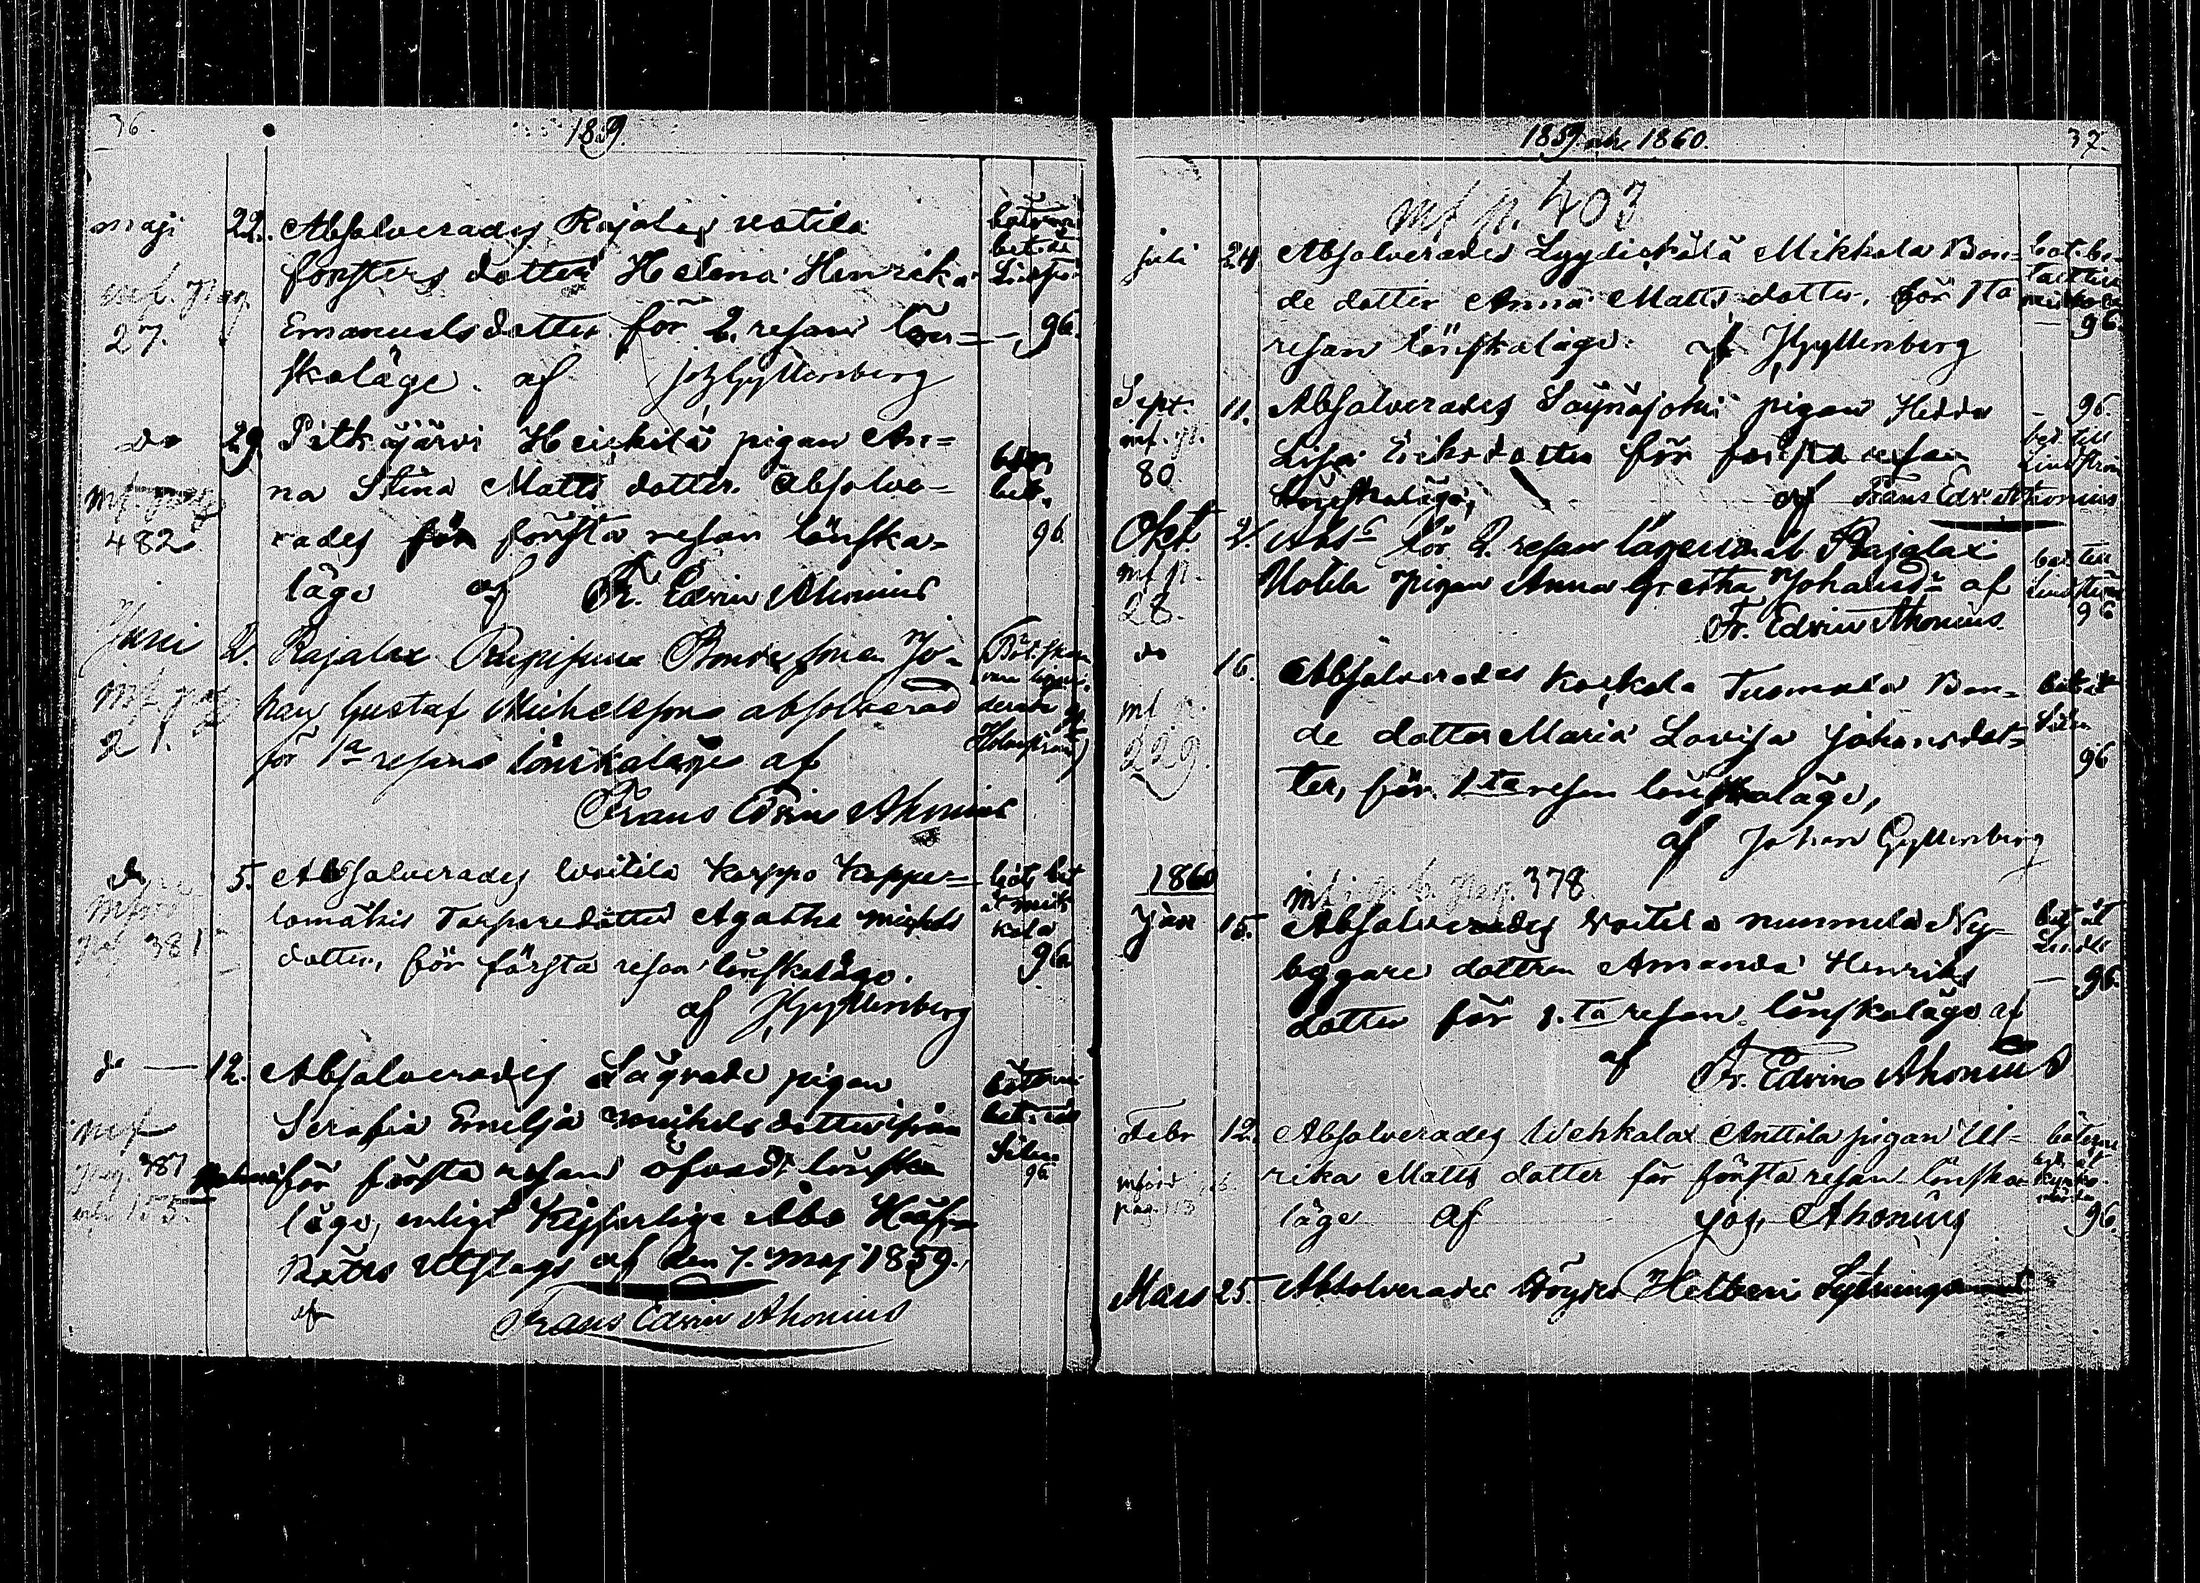 36.
1859.
maji 22. Absolverades Rajalax uotila
forsters dotter Helena Henrika
mf. pag 27.
Emanuelsdotter för 2. resan lön=
skaläge. af Joh Gyllenberg
— 96.
do 29. Pitkäjärvi Heickilä pigan An=
na Stina Matts dotter absolve=
rades för första resan lönska=
läge af Fr. Edvin Ahonius
mf. pag 482
96
Juni 2. Rajalax Bonde sonen Jo=
han Gustaf Michelsson absolverad
för 1a resans lönskaläge af
Frans Edvin Ahonius
mf. pag 21.
do 5. Absolverades Woitila Karppo Kopper=
lomäkis Torparedotter Agatha Michels
dotter, för första resan lönskaläge.
af J Gyllenberg
381
96
do — 12. Absolverades pigan
Serafia Emelja Michels dotter ifrån
för första resans öfvad lönska
läge, enligt Kejserlige Åbo Hof=
Rätts Utslag af den 7. Maj 1859.
af
Frans Edvin Ahonius
mf pag. 387
155.
96
1859 och 1860.
37.
mf p. 403
juli 24 Absolverades Lyydickälä Mikkola Bon=
de dotter Anna Matts dotter, för 1sta
resan lönskaläge. af J Gyllenberg
— 96.
Sept. 11. Absolverades Säynäjoki pigan Hedda
Lisa Eriksdotter för första resan
lönskaläge, af Frans Edv. Ahonius
mf. p. 80
96.
bet. till Lindström
Okt. 2. Abs. för 2. resan lägersmål Rajalax
Uotila pigan Anna Gretha Johansdr af
Fr. Edvin Ahonius.
mf p. 28.
bet. till Lindström
96
do 16. Absolverades Koskela Tuomola Bon=
de dotter Maria Lovisa Johansdot=
ter, för 1sta resan lönskaläge,
af Johan Gyllenberg
mf p. 229.
96
1860
pag. 378
Jan 15. Absolverades Woitila nummela Ny=
byggare dottren Amanda Henriks
dotter för 1.ta resan lönskaläge af
af Fr. Edvin Ahonius
— 96.
Febr 12. Absolverades Wehkalax Anttila pigan Ul=
rika Matts dotter för första resan lönska=
läge af Joh. Ahonius
96.
Mars 25. Absolverades Heltberi